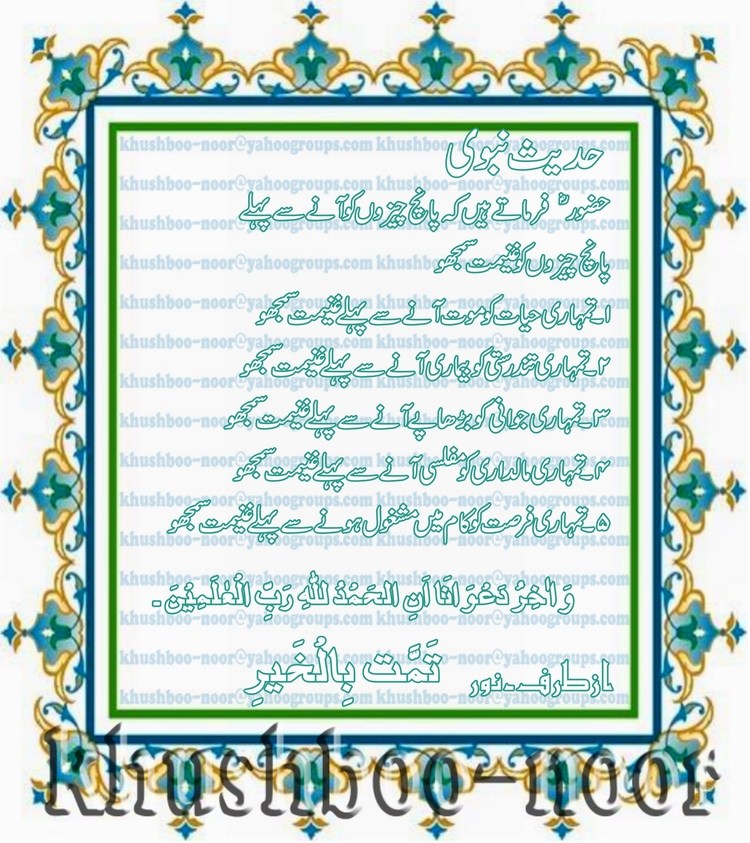 حدیث نبوی
حضورؐ فرماتے ہیں کہ پانچ چیزوں کو آنے سے پہلے
پانچ چیزوں کو غنیمت سمجھو
۱۔تمہاری حیات کو موت آنے سے پہلے غنیمت سمجھو
۲۔تمہاری تندرستی کو بیماری آنے سے پہلے غنیمت سمجھو
۳۔تمہاری جوانی کو بڑھاپے آنے سے پہلے غنیمت سمجھو
۴۔تمہاری مالداری کو مفلسی آنے سے پہلے غنیمت سمجھو
۵۔تمہاری فرصت کو کام میں مشغول ہونے سے پہلے غنیمت سمجھو
وَ اٰخِرُ دَعْوَانَا اَنِ الْحَمْدُ لِلّٰہِ رَبِّ الْعٰلَمِیْنَ۔
از طرف۔نور تَمَّت بِالْخَیرِ
khushboo-noor@yahoogroups.com khushboo-noor@yahoogroups.com
khushboo-noor